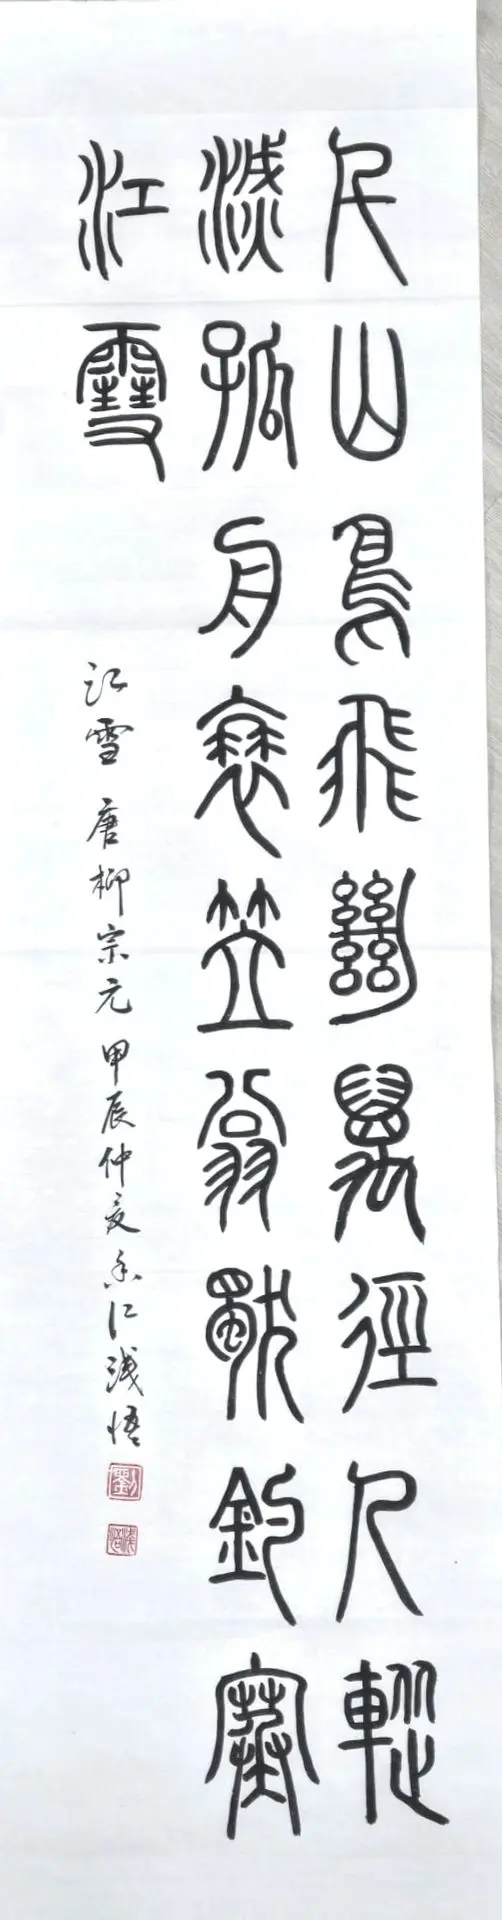 千山鳥飛絕萬徑人蹤
滅孤舟蓑笠翁獨釣寒
江雪
江雪 唐柳宗元 甲辰仲夏 浅悟
劉
浅悟